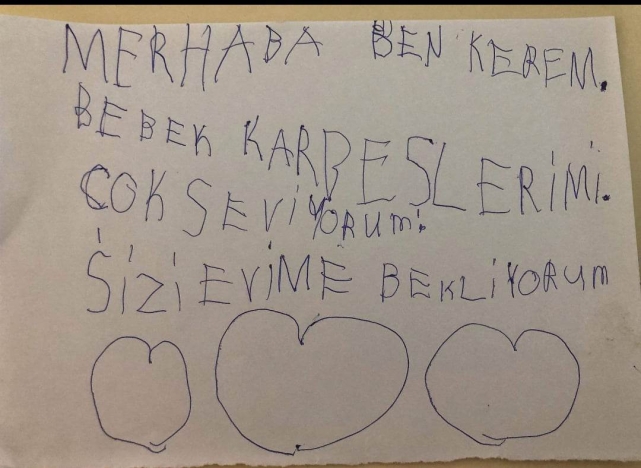 MERHABA BEN KEREM.
BEBEK KARDESLERİMİ.
ÇOK SEVİYORUM.
SİZİ EVİME BEKLİYORUM